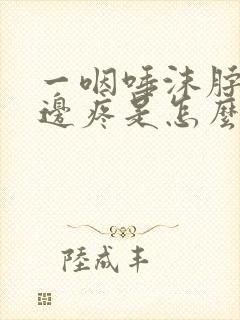 一咽唾沫脖
邊疼是怎麼
陸成丰